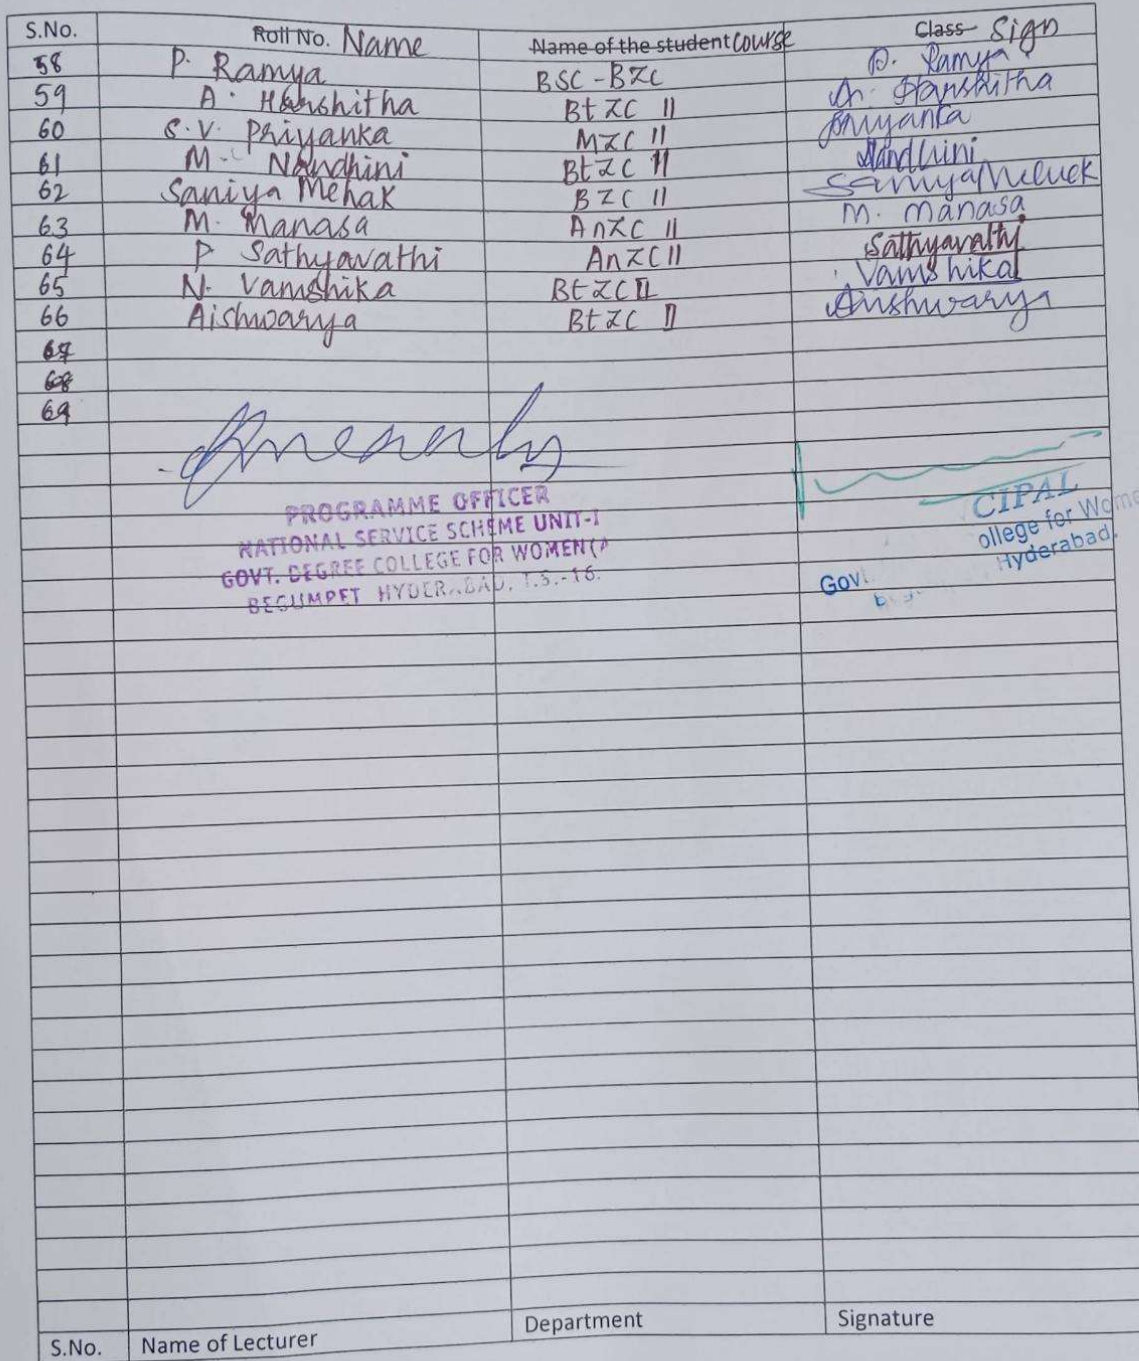 S.No. Roll No. Name Name of the student Course Class Sign
58 P. Ramya BSC-BZC P. Ramya
59 A. Harshitha BtZC II A. Harshitha
60 S.V. Priyanka MZC II Priyanka
61 M. Nandhini BtZC II Nandhini
62 Saniya Mehak BZC II Saniya Mehek
63 M. Manasa AnZC II M. Manasa
64 P Sathyavathi AnZC II Sathyavathi
65 N. Vamshika BtZC II Vamshika
66 Aishwarya BtZC II Aishwarya
67
68
69
PROGRAMME OFFICER
NATIONAL SERVICE SCHEME UNIT-I
GOVT. DEGREE COLLEGE FOR WOMEN(A
BEGUMPET HYDERABAD, T.S.-16.
CIPAL
Govt. ollege for Wome
Hyderabad.
S.No. Name of Lecturer Department Signature